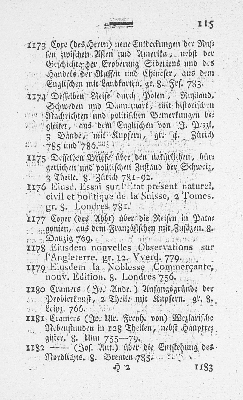 115
1173 Coxe (des Herrn) neue Entdeckungen der Russen
zwischen Asien und Amerika, nebst der
Geschichte der Eroberung Sibiriens und des
Handels der Russen und Chineser, aus dem
Englischen mit Landkarten. gr. 8. Frf. 783.
1174 Desselben Reise durch Polen, Rußland,
Schweden und Dännemark, mit historischen
Nachrichten und politischen Bemerkungen begleitet,
aus dem Englischen von J. Pezzl,
3 Bände, mit Kupfern, gr. 4. Zürich
785 und 786.
1175 Desselben Briefe über den natürlichen, bürgerlichen
und politischen Zustand der Schweiz,
3 Theile. 8. Zürich 781-92.
1176 Eiusd. Essai sur l'état présent naturel,
civil et politique de la Suisse, 2 Tomes.
gr. 8. Londres 782.
1177 Coyer (des Abbt) über die Reisen in Patagonien,
aus dem Französischen mit Zusätzen. 8.
Danzig 769.
1178 Eiusdem nouvelles Observations sur
l'Angleterre. gr. 12. Yverd. 779.
1179 Eiusdem la Noblesse Commerçante,
nouv. Edition. 8. Londres 756.
1180 Cramers (Jo. Andr.) Anfangsgründe der
Probierkunst, 2 Theile mit Kupfern. gr. 8.
Leipz. 766.
1181 Cramers (Jo. Ulr. Freyh. von) Wezlarische
Nebenstunden in 128 Theilen, nebst Hauptregister.
8. Ulm 755-79.
1182 — (Jos. Ant.) über die Entstehung des
Nordlichts. 8. Bremen 785.
H 2 1183